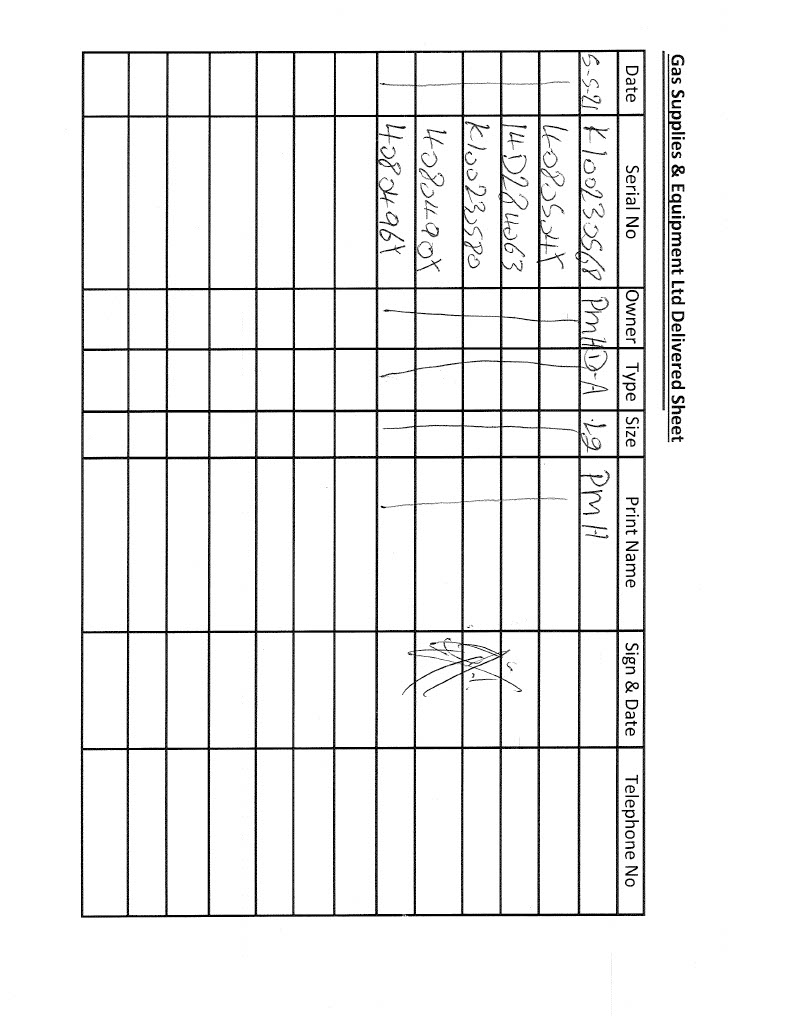 Gas Supplies & Equipment Ltd Delivered Sheet
Date Serial No Owner Type Size Print Name Sign & Date Telephone No
5-5-21 K100230568 PMH D-A Lg PMH
4080504X
14D284063
K100230580
4080490X
4080496X